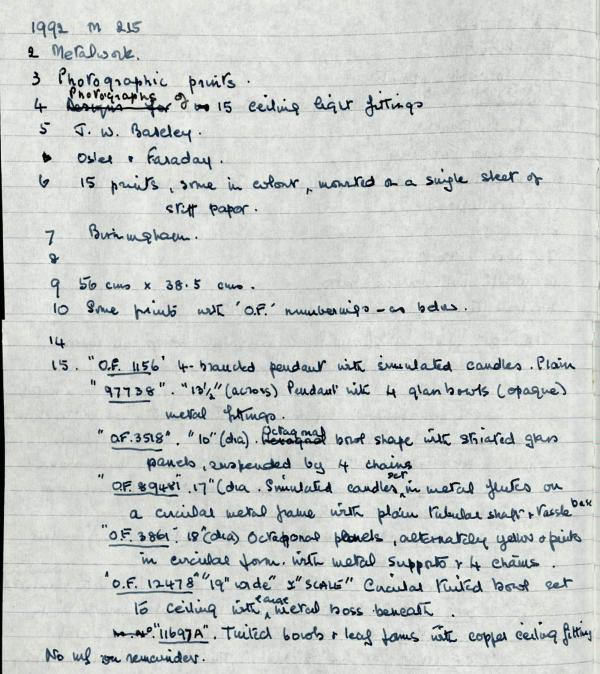 1992 M 215
2 Metalwork.
3 Photographic prints.
Photographs
4 Designs for of 15 ceiling light fittings
5 J. W. Baseley.
Osler & Faraday.
6 15 prints, some in colour, mounted on a single sheet of
stiff paper.
7 Birmingham.
8
9 56 cms x 38.5 cms.
10 Some prints with 'O.F.' numberings - as below.
14
15. "O.F. 1156' 4-branched pendant with simulated candles. Plain
"97738". "13½" (across) Pendant with 4 glass bowls (opaque)
metal fittings.
Octagonal
"O.F. 3518". "10" (dia). Hexagonal bowl shape with striated glass
panels, suspended by 4 chains
set
"O.F. 8948". 17" (dia. Simulated candles in metal flutes on
a circular metal frame with plain tubular shaft & tassle base
"O.F. 3861' 18" (dia) Octagonal panels, alternately yellow & pink
in circular form. with metal supports & 4 chains.
"O.F. 12478" "19" wide" "SCALE" Circular tinted bowl set
large
to ceiling with metal boss beneath.
"11697A". Tinted bowls & leaf forms with copper ceiling fitting
No inf on remainder.